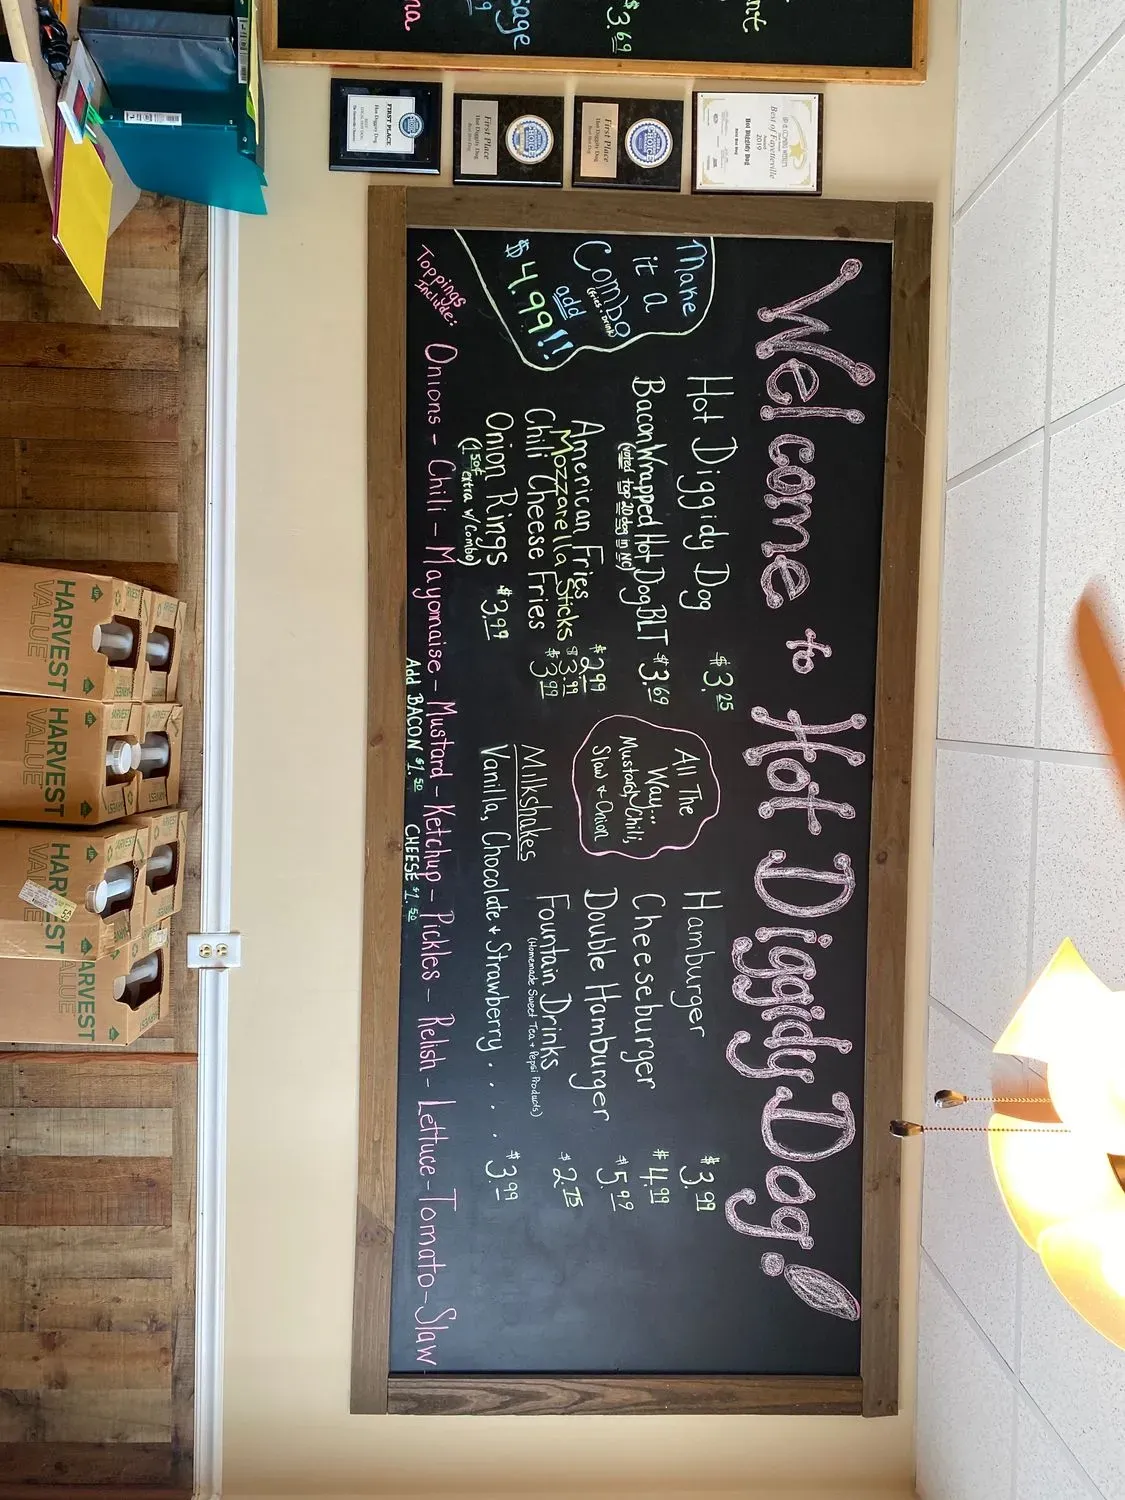 Welcome to Hot Diggidy Dog!
Make
it a
Combo
(fries + Drink)
add
$4.99!!
Hot Diggidy Dog $3.25
Bacon Wrapped Hot Dog BLT $3.69
(voted top 20 dog in NC)
American Fries $2.99
Mozzarella Sticks $3.99
Chili Cheese Fries $3.99
Onion Rings $3.99
(150¢ extra w/ Combo)
All The
Way...
Mustard, Chili,
Slaw + Onion
Hamburger $3.99
Cheeseburger $4.99
Double Hamburger $5.99
Fountain Drinks $2.75
(Homemade Sweet Tea + Pepsi Products)
Milkshakes
Vanilla, Chocolate + Strawberry . . . . $3.99
Toppings
Include:
Onions - Chili - Mayonaise - Mustard - Ketchup - Pickles - Relish - Lettuce - Tomato - Slaw
Add BACON $1.50 CHEESE $1.50
$3.69
sage
FIRST PLACE
Hot Diggidy Dog
First Place
Hot Diggidy Dog
Best Hot Dog
First Place
Hot Diggidy Dog
Best Hot Dog
CHOICE
Best of Fayetteville
2019
Hot Diggidy Dog
FREE
HARVEST
VALUE
HARVEST
VALUE
HARVEST
VALUE
HARVEST
VALUE